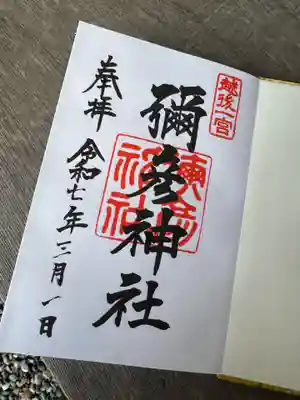 越後一宮
彌彦神社
奉拝
令和七年三月一日